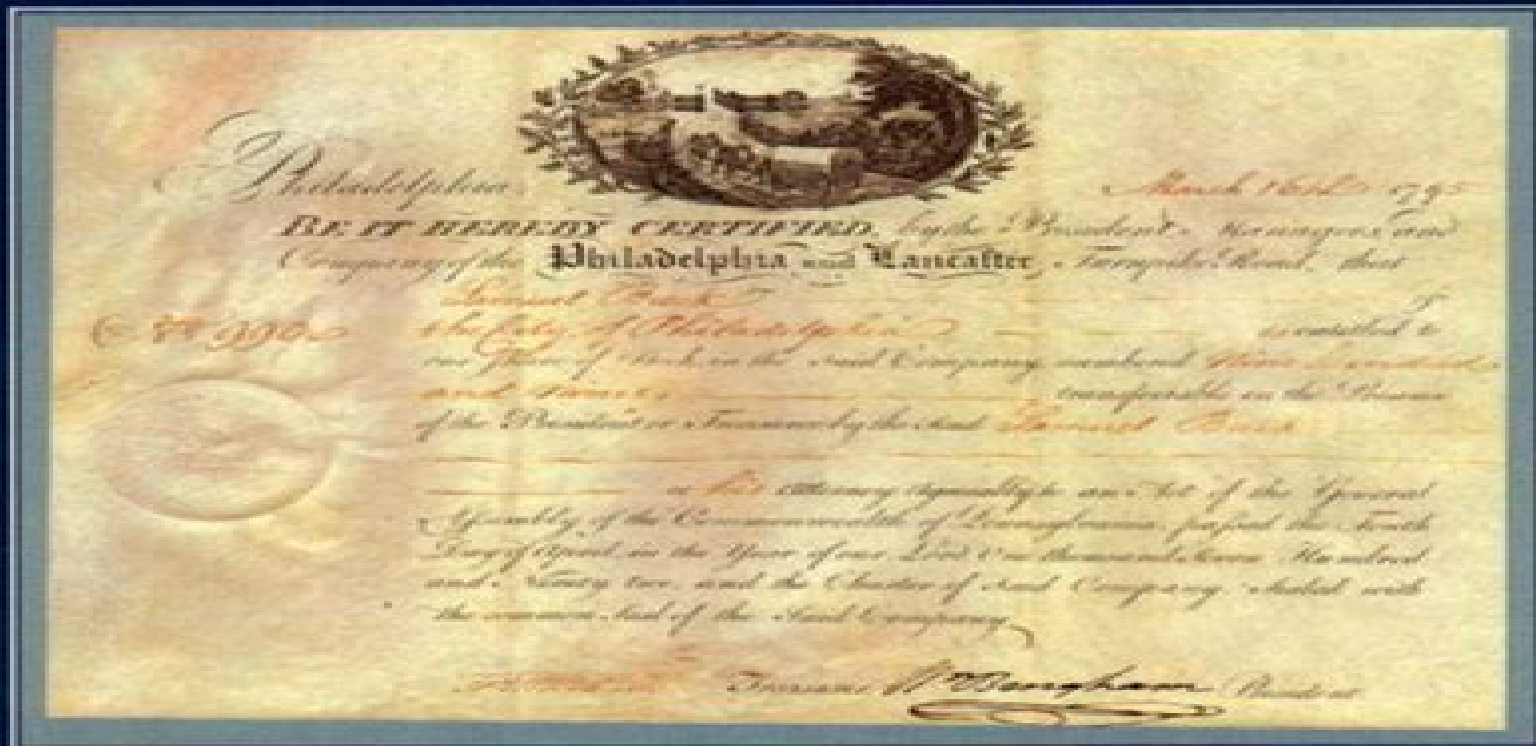 Philadelphia March 16th 1795
BE IT HEREBY CERTIFIED, by the President, Managers and
Company of the Philadelphia and Lancaster Turnpike Road, that
Samuel
No 990 the City of Philadelphia is entitled to
one Share of Stock in the said Company, numbered Nine hundred
and Ninety transferable in the Presence
of the President or Treasurer by the said Samuel
or his Attorney Agreeably to an Act of the General
Assembly of the Commonwealth of Pennsylvania, passed the Ninth
Day of April, in the Year of our Lord One thousand Seven Hundred
and Ninety two, and the Charter of said Company Sealed with
the common Seal of the said Company
Treasurer Wm Bingham President